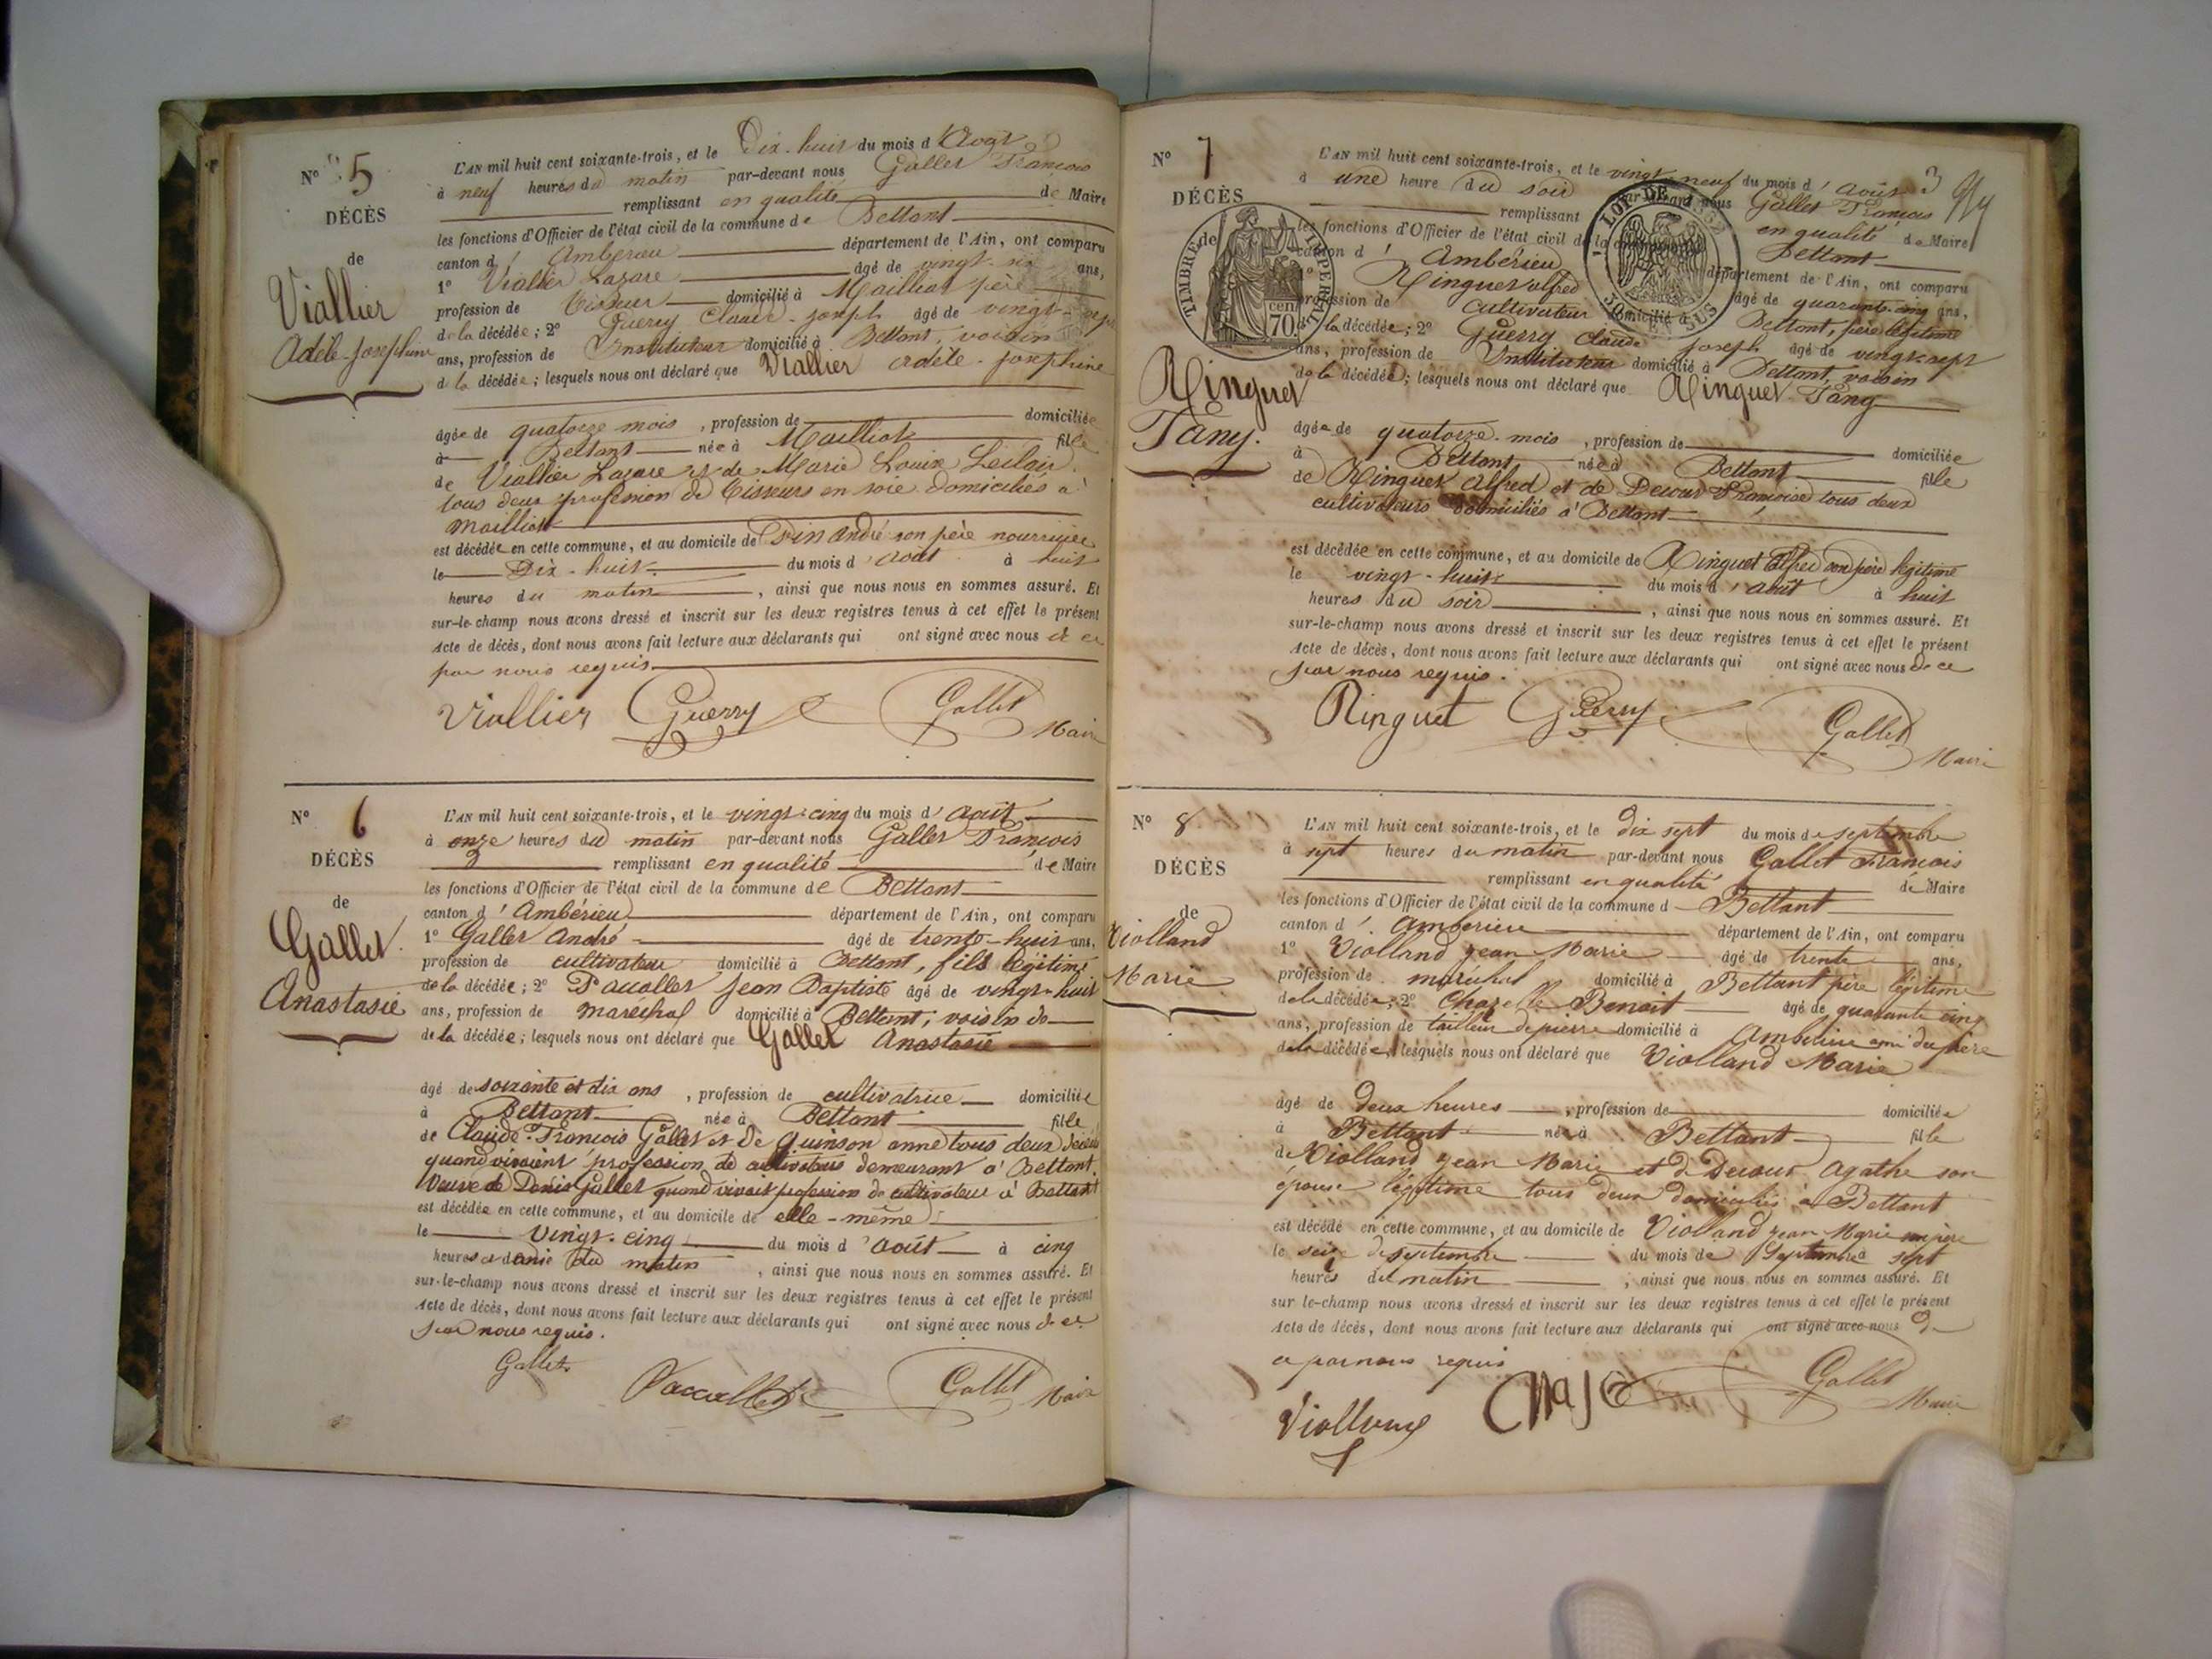 N° 5
DÉCÈS
de
Viallier
Adèle-Josephine
L'AN mil huit cent soixante-trois, et le Dix-huit du mois d'Aout
à neuf heures du matin par-devant nous Gallet François
remplissant en qualité de Maire
les fonctions d'Officier de l'état civil de la commune de Bettant
canton d'Ambérieu département de l'Ain, ont comparu
1° Viallier Lazare âgé de vingt- ans,
profession de Tisseur domicilié à Mailliat père
de la décédée; 2° Guerry Claude-joseph âgé de vingt-sept
ans, profession de Instituteur domicilié à Bettant, voisin
de la décédée; lesquels nous ont déclaré que Viallier Adèle-josephine
âgée de quatorze mois, profession de domiciliée
à Bettant née à Mailliat fille
de Viallier Lazare et de Marie Louise Leclair
tous deux profession de Tisseurs en soie domiciliés à
Mailliat
est décédée en cette commune, et au domicile de André son père nourricier
le Dix-huit du mois d'août à huit
heures du matin, ainsi que nous nous en sommes assuré. Et
sur-le-champ nous avons dressé et inscrit sur les deux registres tenus à cet effet le présent
Acte de décès, dont nous avons fait lecture aux déclarants qui ont signé avec nous de ce
par nous requis
Viallier Guerry Gallet Maire
N° 6
DÉCÈS
de
Gallet
Anastasie
L'AN mil huit cent soixante-trois, et le vingt-cinq du mois d'août
à onze heures du matin par-devant nous Gallet François
remplissant en qualité de Maire
les fonctions d'Officier de l'état civil de la commune de Bettant
canton d'Ambérieu département de l'Ain, ont comparu
1° Gallet André âgé de trente-huit ans,
profession de cultivateur domicilié à Bettant, fils légitime
de la décédée; 2° Pacallet Jean Baptiste âgé de vingt-huit
ans, profession de maréchal domicilié à Bettant, voisin de
de la décédée; lesquels nous ont déclaré que Gallet Anastasie
âgé de soixante et dix ans, profession de cultivatrice domiciliée
à Bettant née à Bettant fille
de Claude-François Gallet et de Quinson anne tous deux décédés
quand vivaient profession de cultivateurs demeurant à Bettant.
Veuve de Denis Gallet quand vivait profession de cultivateur à Bettant
est décédée en cette commune, et au domicile de elle-même
le vingt-cinq du mois d'août à cinq
heures et demie du matin, ainsi que nous nous en sommes assuré. Et
sur-le-champ nous avons dressé et inscrit sur les deux registres tenus à cet effet le présent
Acte de décès, dont nous avons fait lecture aux déclarants qui ont signé avec nous de ce
par nous requis.
Gallet Paccallet Gallet Maire
N° 7
DÉCÈS
TIMBRE IMPERIAL
70 cen
LOI DE 1832
EN SUS
Ringuet
Fany.
L'AN mil huit cent soixante-trois, et le vingt-neuf du mois d'Août 3
à une heure du soir par-devant nous Gallet François
remplissant en qualité de Maire
les fonctions d'Officier de l'état civil de la commune Bettant
canton d'Ambérieu département de l'Ain, ont comparu
1° Ringuet alfred âgé de quarante-cinq ans,
profession de cultivateur domicilié à Bettant, père légitime
de la décédée; 2° Guerry Claude joseph âgé de vingt-sept
ans, profession de Instituteur domicilié à Bettant, voisin
de la décédée; lesquels nous ont déclaré que Ringuet Fany
âgée de quatorze mois, profession de domiciliée
à Bettant née à Bettant fille
de Ringuet Alfred et de Decour Françoise tous deux
cultivateurs domiciliés à Bettant
est décédée en cette commune, et au domicile de Ringuet Alfred son père légitime
le vingt-huit du mois d'août à huit
heures du soir, ainsi que nous nous en sommes assuré. Et
sur-le-champ nous avons dressé et inscrit sur les deux registres tenus à cet effet le présent
Acte de décès, dont nous avons fait lecture aux déclarants qui ont signé avec nous de ce
par nous requis.
Ringuet Guerry Gallet Maire
N° 8
DÉCÈS
de
Violland
Marie
L'AN mil huit cent soixante-trois, et le dix sept du mois de septembre
à sept heures du matin par-devant nous Gallet François
remplissant en qualité de Maire
les fonctions d'Officier de l'état civil de la commune d Bettant
canton d'Amberieu département de l'Ain, ont comparu
1° Violland jean Marie âgé de trente ans,
profession de maréchal domicilié à Bettant père légitime
de la décédée; 2° Benoit âgé de quarante cinq
ans, profession de tailleur de pierre domicilié à Ambérieu ami du père
de la décédée, lesquels nous ont déclaré que Violland Marie
âgé de deux heures, profession de domiciliée
à Bettant née à Bettant fille
de Violland jean Marie et de Decour Agathe son
épouse légitime tous deux domiciliés à Bettant
est décédé en cette commune, et au domicile de Violland jean Marie son père
le seize de septembre du mois de Septembre à sept
heures du matin, ainsi que nous nous en sommes assuré. Et
sur-le-champ nous avons dressé et inscrit sur les deux registres tenus à cet effet le présent
Acte de décès, dont nous avons fait lecture aux déclarants qui ont signé avec nous de
ce par nous requis
Violland Gallet Maire